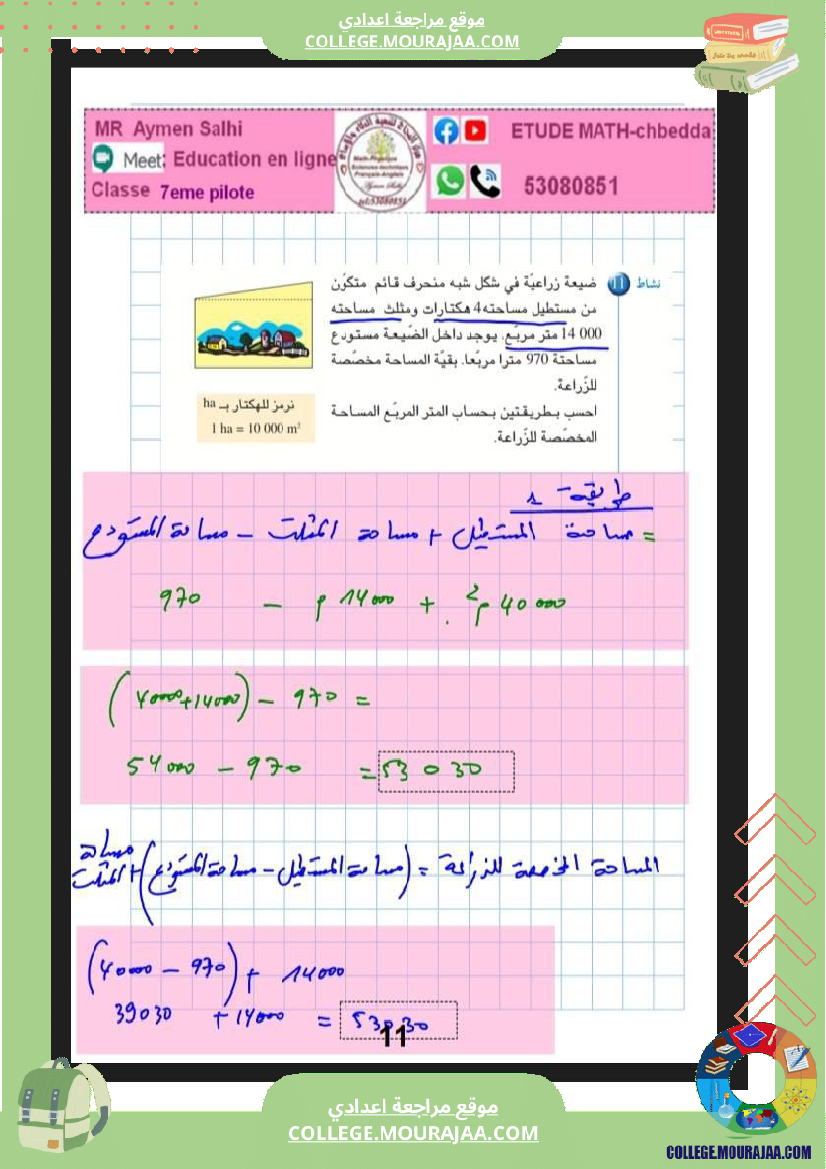 موقع مراجعة اعدادي
COLLEGE.MOURAJAA.COM
MR Aymen Salhi
Meet: Education en ligne
Classe 7eme pilote
Math-Physique
Sciences-technique
Français-Anglais
tel:53080851
ETUDE MATH-chbedda
53080851
نشاط 11 ضيعة زراعيّة في شكل شبه منحرف قائم متكوّن
من مستطيل مساحته 4 هكتارات ومثلث مساحته
14 000 متر مربّع. يوجد داخل الضّيعة مستودع
مساحتة 970 مترا مربّعا. بقيّة المساحة مخصّصة
للزّراعة.
احسب بطريقتين بحساب المتر المربّع المساحة
المخصّصة للزّراعة.
نرمز للهكتار بـ ha
1 ha = 10 000 m²
طريقة 1
= مساحة المستطيل + مساحة المثلث - مساحة المستودع
40 000 م² + 14 000 م - 970
(40000+14000) - 970 =
54000 - 970 = 53 030
المساحة المخصصة للزراعة = (مساحة المستطيل - مساحة المستودع) + مساحة المثلث
(40000 - 970) + 14000
39030 + 14000 = 53030
11
موقع مراجعة اعدادي
COLLEGE.MOURAJAA.COM
COLLEGE.MOURAJAA.COM